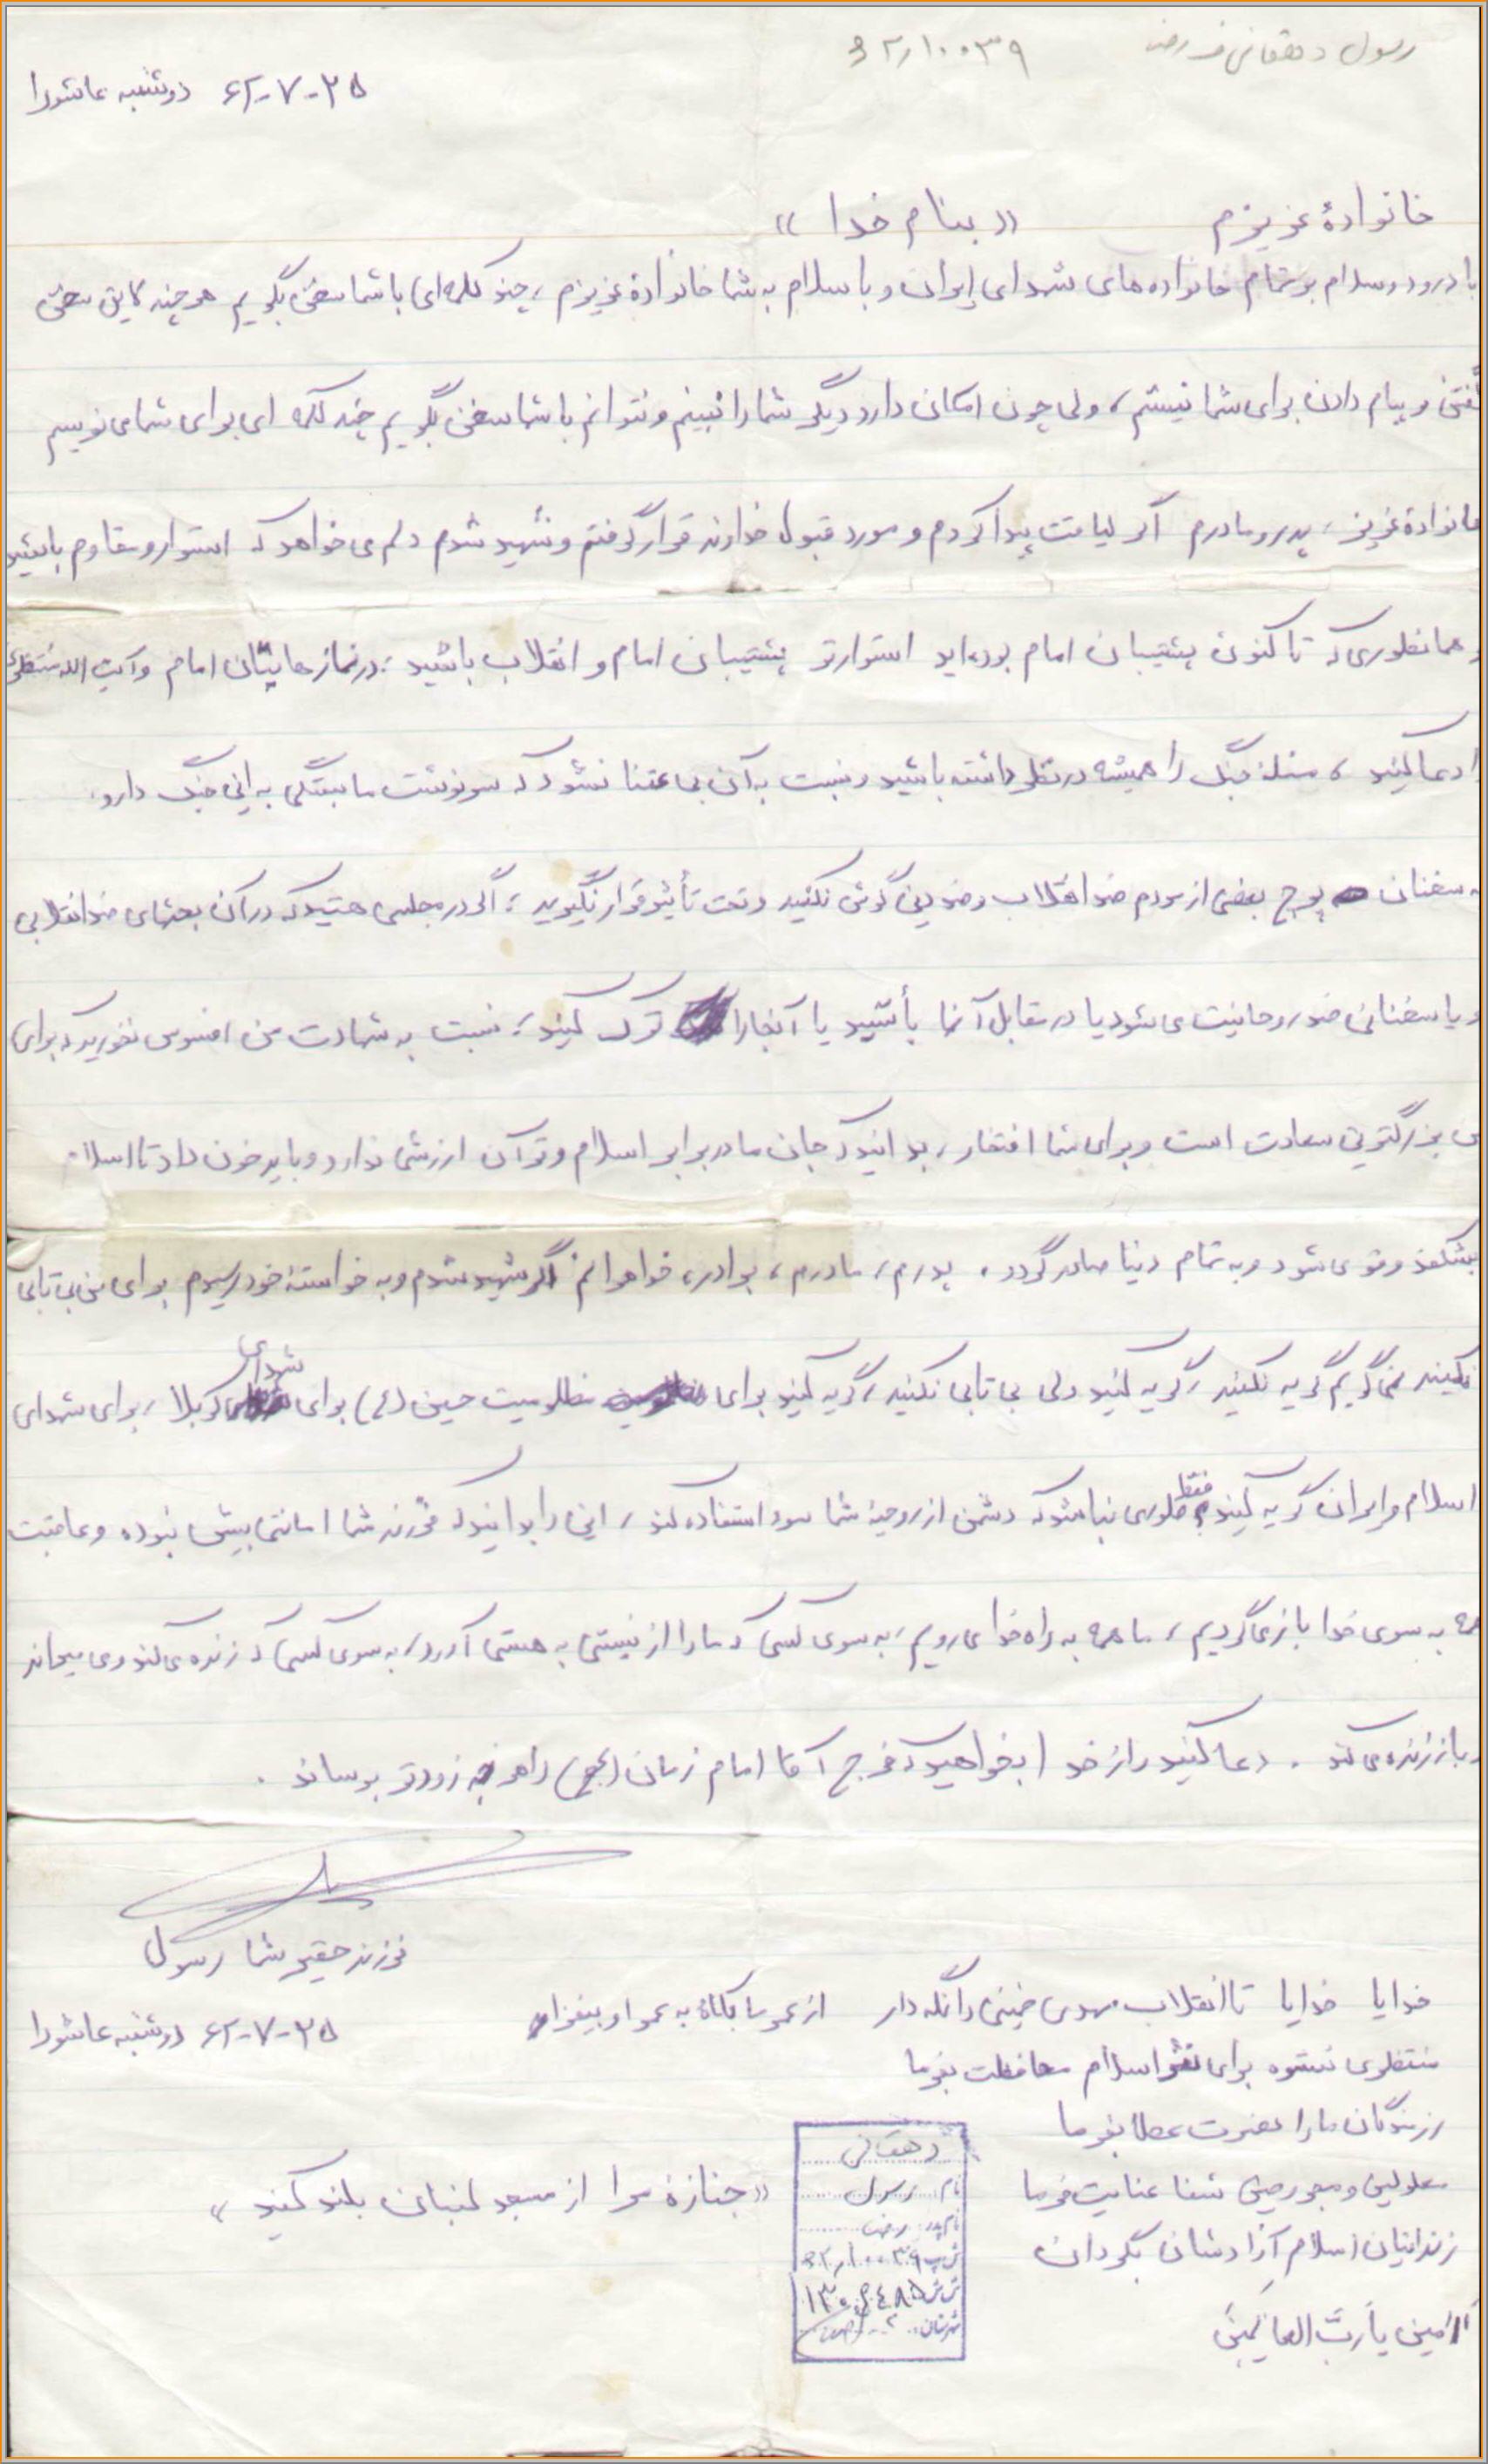 رسول دهقانی فرزند رضا ۳۲ر۱۰۰۳۹
۶۲-۷-۲۵ دوشنبه عاشورا
خانوادهٔ عزیزم «بنام خدا»
با درود و سلام بر تمام خانواده‌های شهدای ایران و با سلام به شما خانوادهٔ عزیزم، چند کلمه‌ای با شما سخن بگویم هر چند لایق سخن
گفتن و پیام دادن برای شما نیستم، ولی چون امکان دارد دیگر شما را نبینم و نتوانم با شما سخن بگویم چند کلمه ای برای شما می نویسم
خانوادهٔ عزیز، پدر و مادرم اگر لیاقت پیدا کردم و مورد قبول خداوند قرار گرفتم و شهید شدم دلم می خواهد که استوار و مقاوم باشید
و همانطوری که تا کنون پشتیبان امام بوده‌اید استوارتر پشتیبان امام و انقلاب باشید، در نمازهایتان امام و آیت الله منتظری
را دعا کنید، مسئله جنگ را همیشه در نظر داشته باشید و نسبت به آن بی اعتنا نشوید که سرنوشت ما بستگی به این جنگ دارد.
به سخنان پوچ بعضی از مردم ضد انقلاب و ضد دین گوش نکنید و تحت تأثیر قرار نگیرید، اگر در مجلسی هستید که در آن بحثهای ضد انقلابی
و یا سخنانی ضد روحانیت می شود یا در مقابل آنها بأیستید یا آنجا را ترک کنید، نسبت به شهادت من افسوس نخورید که برای
من بزرگترین سعادت است و برای شما افتخار، بدانید که جان ما در برابر اسلام و قرآن ارزشی ندارد و باید خون داد تا اسلام
بشکفد و قوی شود و به تمام دنیا صادر گردد. پدرم، مادرم، برادر، خواهرانم اگر شهید شدم و به خواستهٔ خود رسیدم برای من بی تابی
نکنید نمی گویم گریه نکنید، گریه کنید ولی بی تابی نکنید، گریه کنید برای مظلومیت حسین (ع) برای شهدای کربلا، برای شهدای
اسلام و ایران گریه کنید فقط طوری نباشد که دشمن از روحیهٔ شما سوء استفاده کند، این را بدانید که فرزند شما امانتی بیش نبوده و عاقبت
همه به سوی خدا باز می گردیم، ما همه به راه خدا می رویم، به سوی کسی که ما را از نیستی به هستی آورد، به سوی کسی که زنده می کند و می میراند
و باز زنده می کند. دعا کنید و از خدا بخواهید که فرج آقا امام زمان (عج) را هر چه زودتر برساند.
فرزند حقیر شما رسول
۶۲-۷-۲۵ دوشنبه عاشورا
خدایا خدایا تا انقلاب مهدی خمینی را نگه دار از عمر ما بکاه و به عمر او بیفزا
منتظری نستوه برای نشر اسلام محافظت بفرما
رزمندگان ما را نصرت عطا بفرما
معلولین و مجروحین شفا عنایت فرما
زندانیان اسلام آزادشان بگردان
آمین یا رب العالمین
«جنازهٔ مرا از مسجد لنبان بلند کنید»
دهقانی
نام: رسول
نام پدر: رضا
ش پ ۳۲ر۱۰۰۳۹
ش ش
شهرستان: